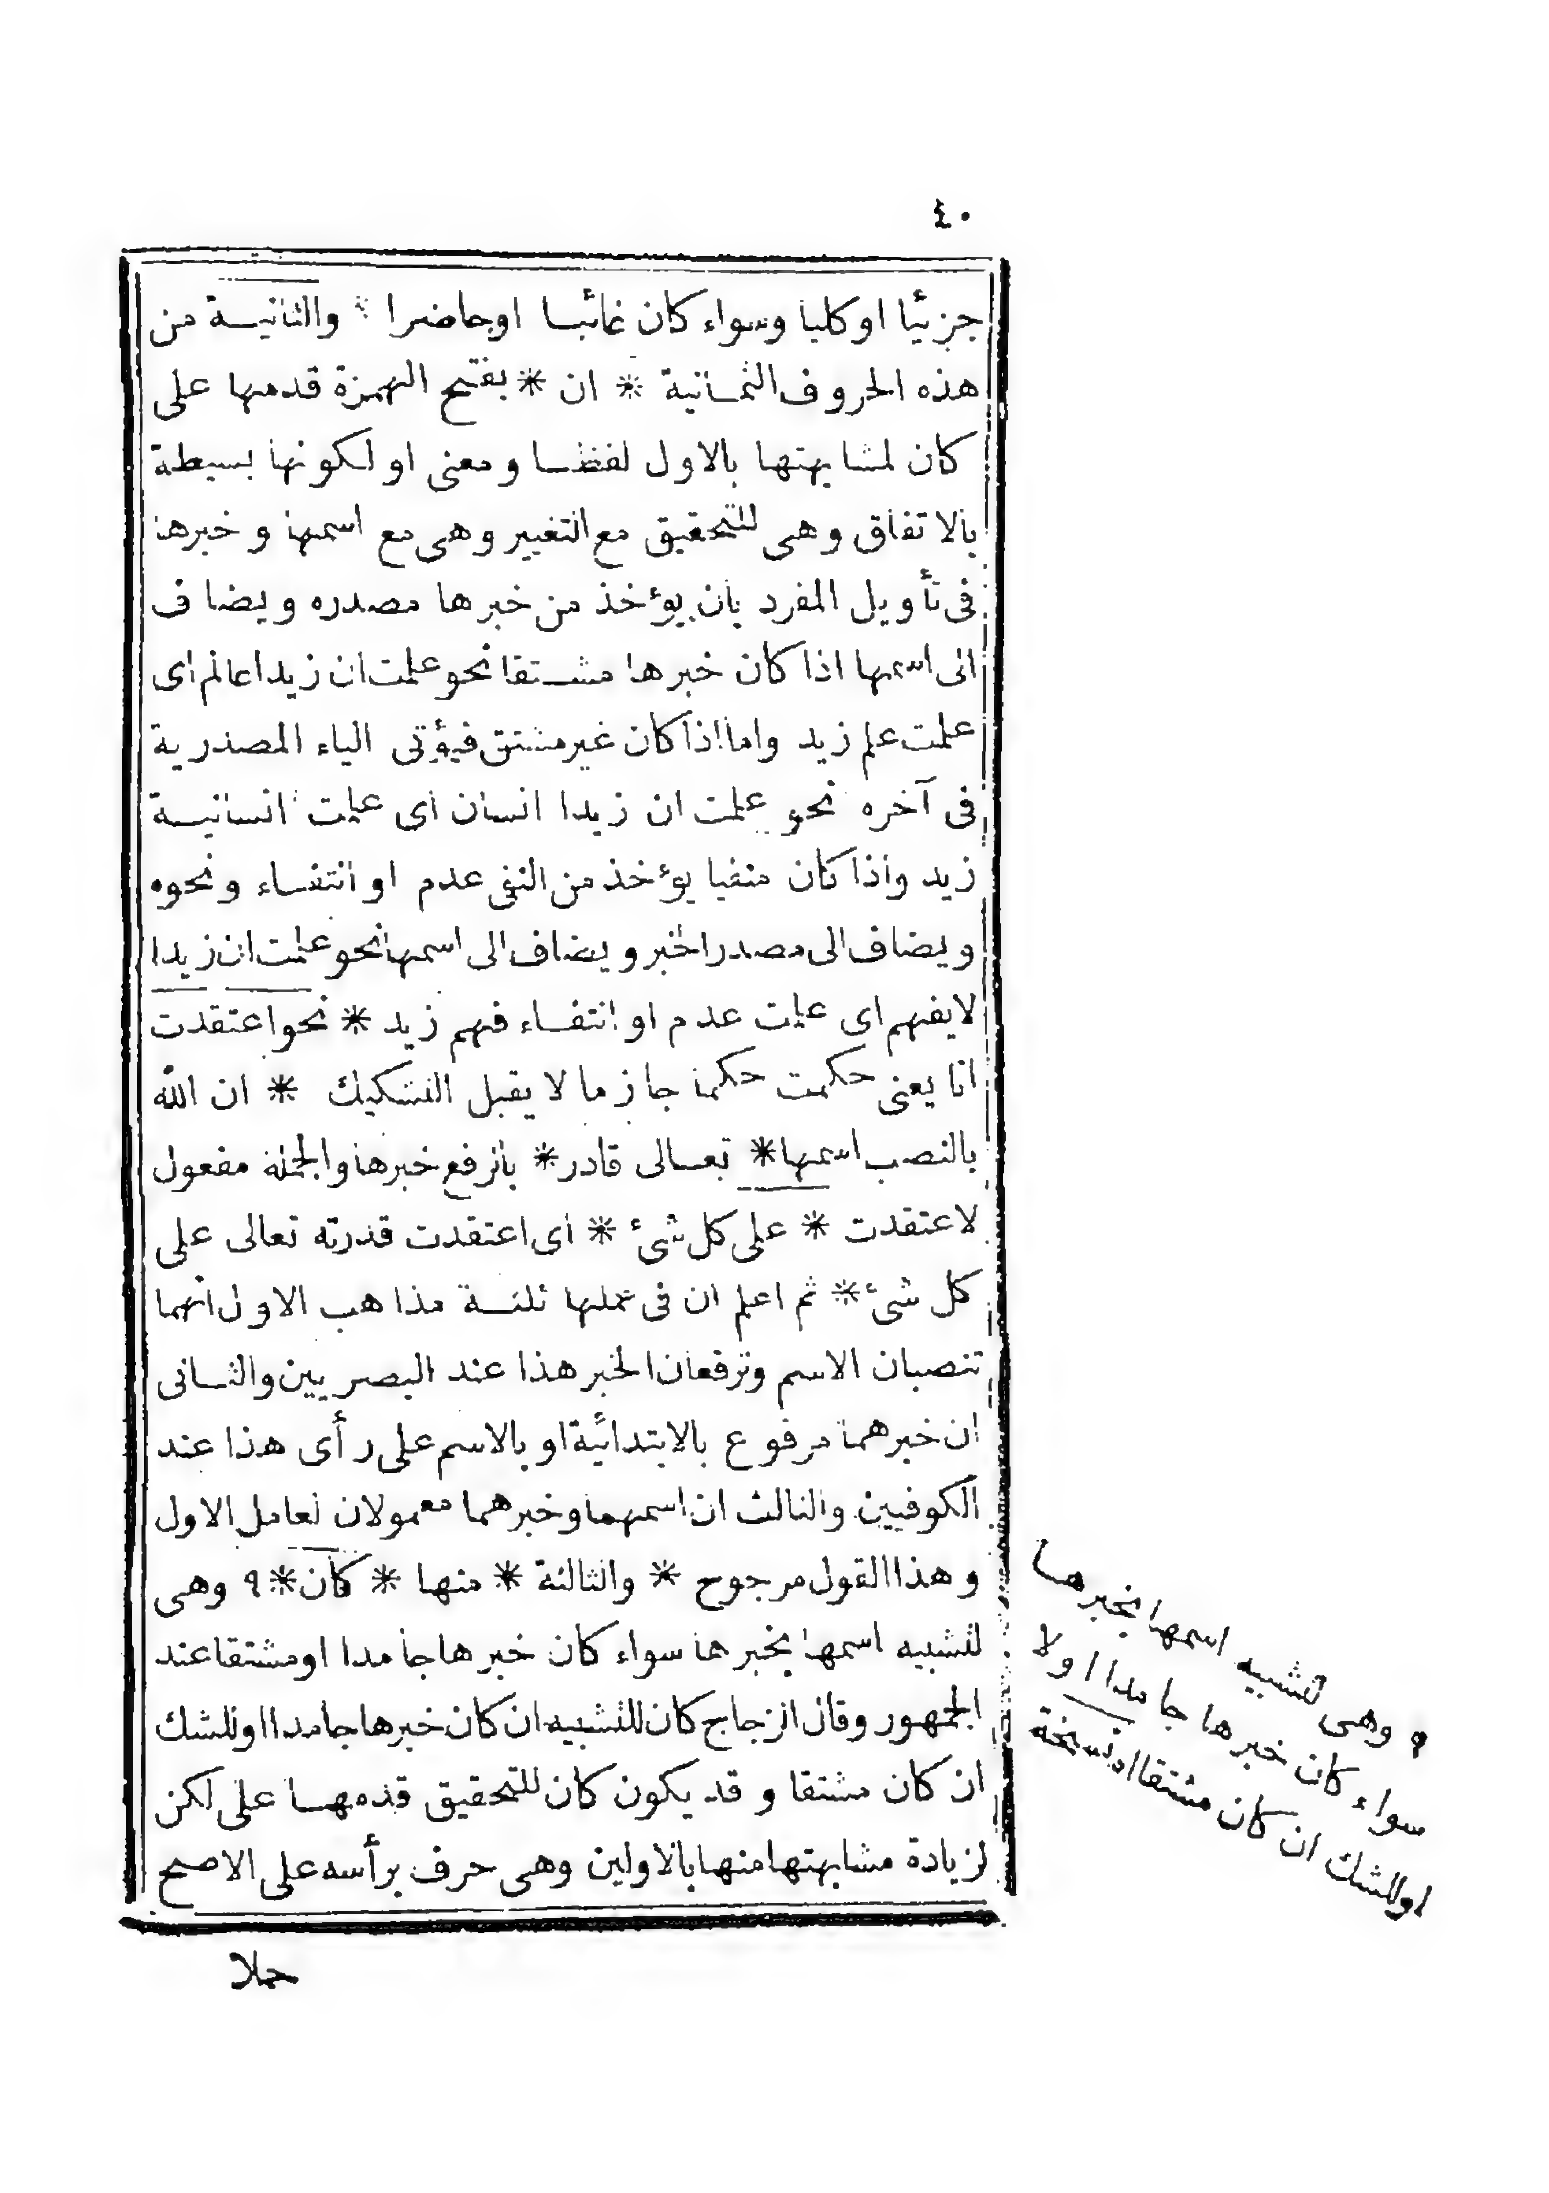 ٤٠
جزئيا او كليا وسواء كان غائبا او حاضرا والثانية من
هذه الحروف الثمانية * ان * بفتح الهمزة قدمها على
كان لمشابهتها بالاول لفظا ومعنى او لكونها بسيطة
بالاتفاق وهى للتحقيق مع التغيير وهى مع اسمها و خبرها
فى تأويل المفرد بان يؤخذ من خبرها مصدره ويضاف
الى اسمها اذا كان خبرها مشتقا نحو علمت ان زيدا عالم اى
علمت علم زيد واما اذا كان غير مشتق فيؤتى الياء المصدرية
فى آخره نحو علمت ان زيدا انسان اى علمت انسانية
زيد واذا كان منفيا يؤخذ من النفى عدم او انتفاء ونحوه
ويضاف الى مصدر الخبر ويضاف الى اسمها نحو علمت ان زيدا
لايفهم اى علمت عدم او انتفاء فهم زيد * نحو اعتقدت
انا يعنى حكمت حكما جازما لا يقبل التشكيك * ان الله
بالنصب اسمها * تعالى قادر * بالرفع خبرها والجملة مفعول
لاعتقدت * على كل شئ * اى اعتقدت قدرته تعالى على
كل شئ * ثم اعلم ان فى عملها ثلثة مذاهب الاول انهما
تنصبان الاسم وترفعان الخبر هذا عند البصريين والثانى
ان خبرهما مرفوع بالابتدائية او بالاسم على رأى هذا عند
الكوفيين والثالث ان اسمهما وخبرهما معمولان لعامل الاول
وهذا القول مرجوح * والثالثة * منها * كان * ٩ وهى
لتشبيه اسمها بخبرها سواء كان خبرها جامدا او مشتقا عند
الجمهور وقال الزجاج كان للتشبيه ان كان خبرها جامدا او للشك
ان كان مشتقا و قد يكون كان للتحقيق قدمها على لكن
لزيادة مشابهتها منها بالاولين وهى حرف برأسه على الاصح
حملا
٩ وهى لتشبيه اسمها بخبرها
سواء كان خبرها جامدا اولا
او للشك ان كان مشتقا نسخة